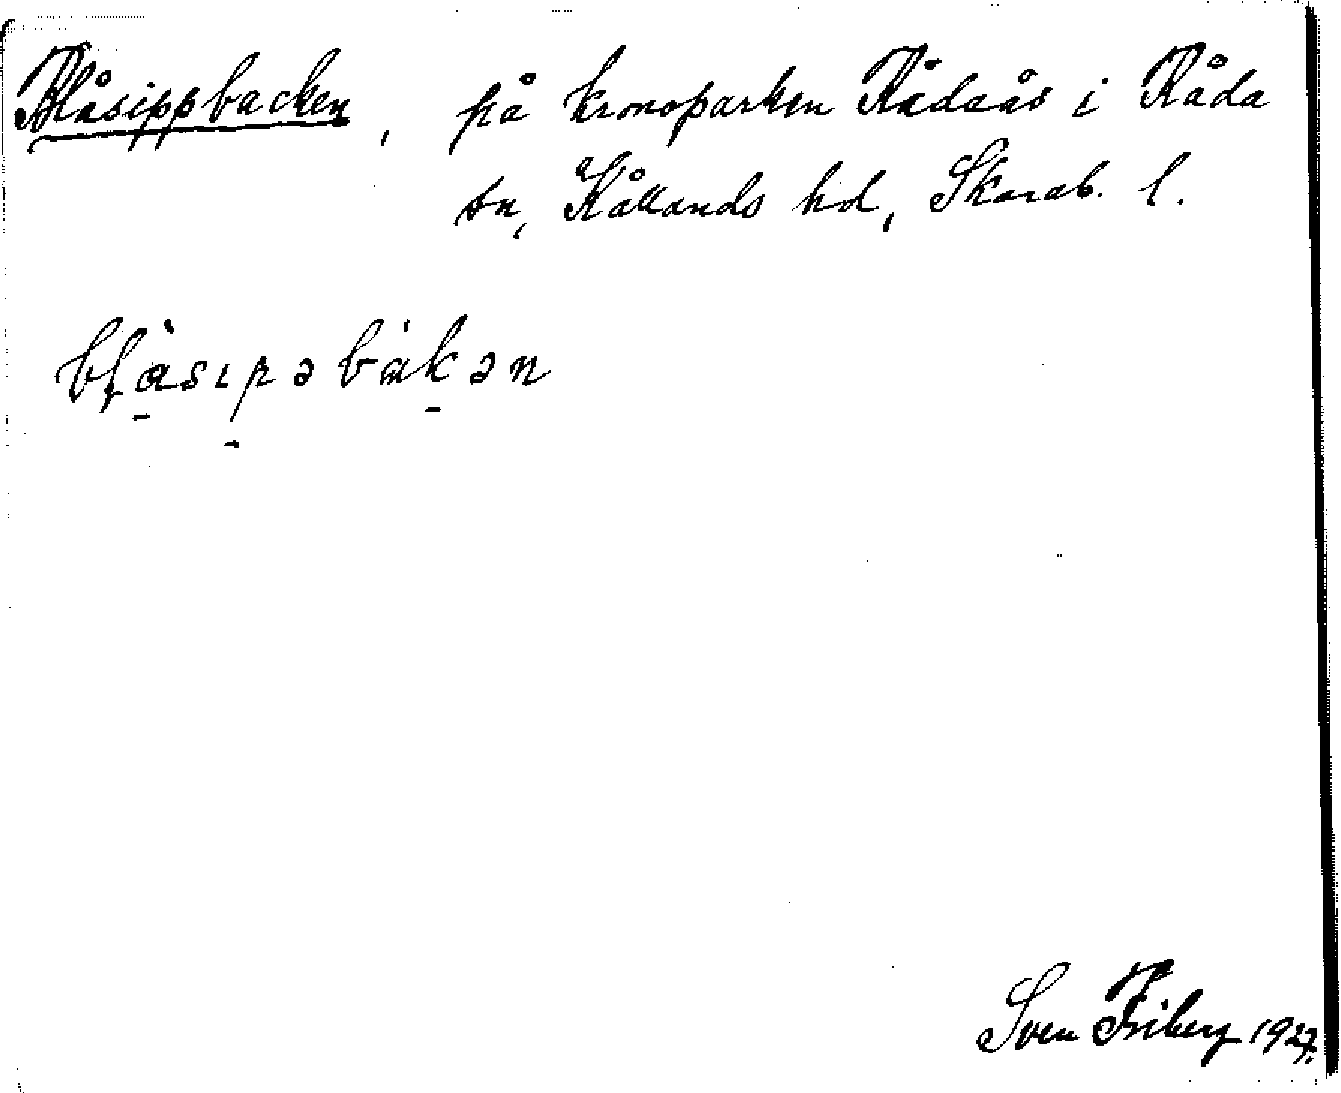 Blåsippbacken, på kronoparken Rådaås i Råda
sn, Kållands hd, Skarab. l.
bɫàsɩpəbàkən
Sven Friberg 1927.